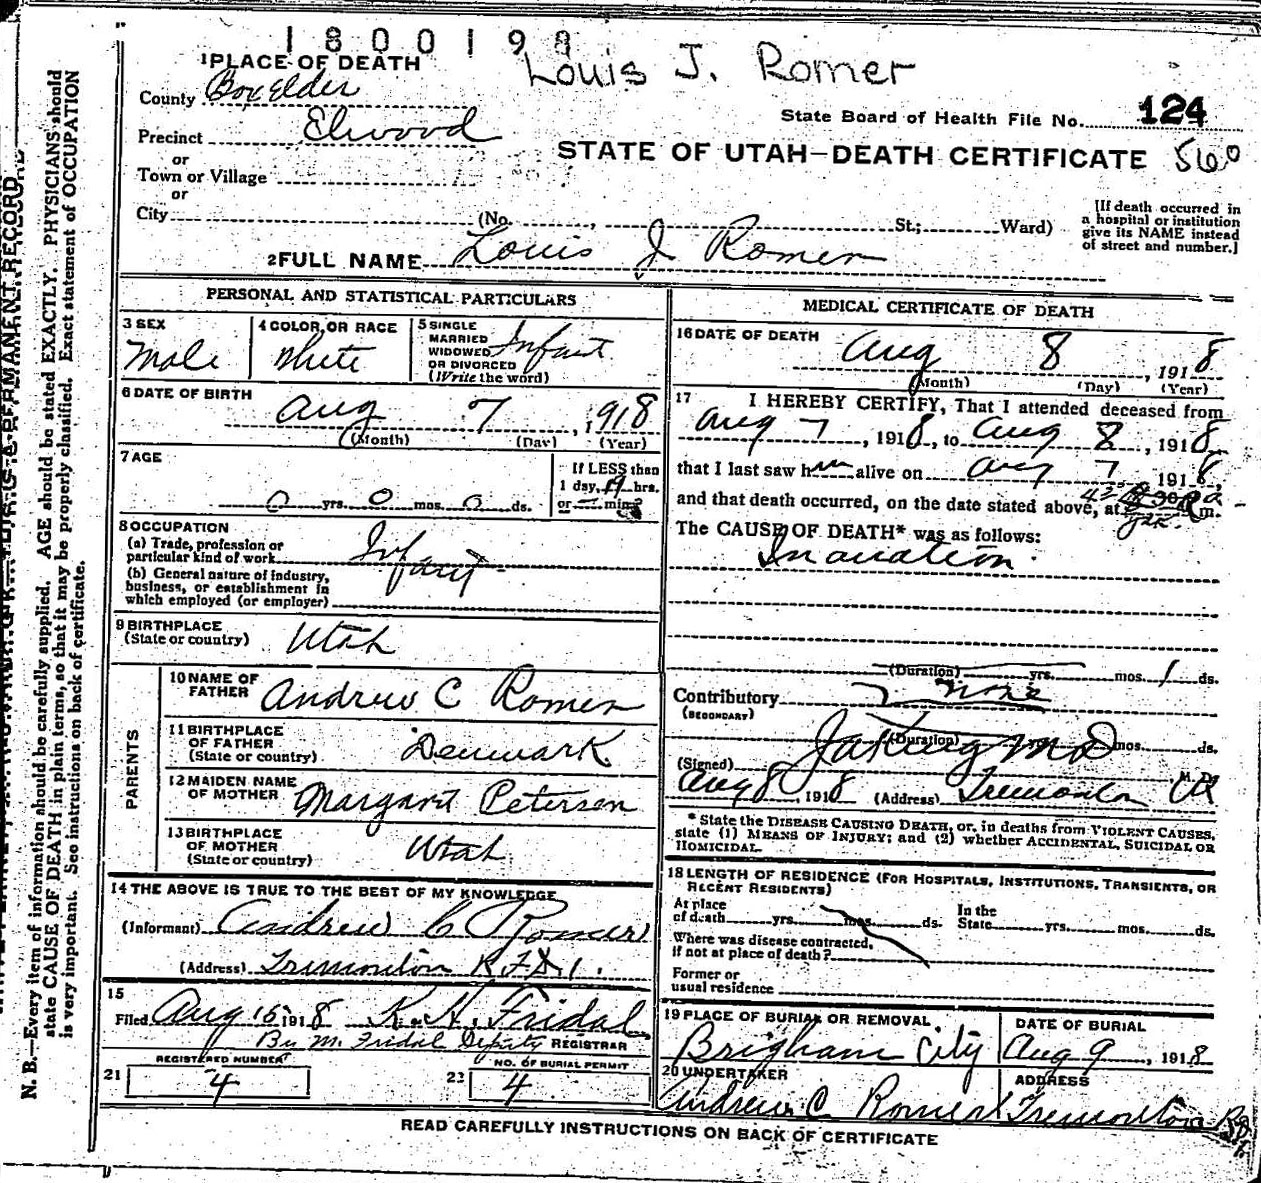 1800198
Louis J. Romer
1 PLACE OF DEATH
County Box Elder
State Board of Health File No. 124
Precinct Elwood
STATE OF UTAH—DEATH CERTIFICATE 560
or
Town or Village
or
City (No. , St.; Ward)
[If death occurred in
a hospital or institution
give its NAME instead
of street and number.]
2 FULL NAME Louis J Romer
PERSONAL AND STATISTICAL PARTICULARS
3 SEX Male
4 COLOR OR RACE White
5 SINGLE
MARRIED
WIDOWED
OR DIVORCED
(Write the word) Infant
6 DATE OF BIRTH
Aug 7, 1918
(Month) (Day) (Year)
7 AGE
0 yrs. 0 mos. 0 ds.
If LESS than
1 day, 19 hrs.
or min?
8 OCCUPATION
(a) Trade, profession or
particular kind of work Infant
(b) General nature of industry,
business, or establishment in
which employed (or employer)
9 BIRTHPLACE
(State or country) Utah
PARENTS
10 NAME OF
FATHER Andrew C Romer
11 BIRTHPLACE
OF FATHER
(State or country) Denmark
12 MAIDEN NAME
OF MOTHER Margaret Petersen
13 BIRTHPLACE
OF MOTHER
(State or country) Utah
14 THE ABOVE IS TRUE TO THE BEST OF MY KNOWLEDGE
(Informant) Andrew C Romer
(Address) Tremonton R.F.D. 1.
15
Filed Aug 15, 1918 K. H. Fridal
By M. Fridal Deputy REGISTRAR
REGISTERED NUMBER
21 4
NO. OF BURIAL PERMIT
22 4
MEDICAL CERTIFICATE OF DEATH
16 DATE OF DEATH
Aug 8, 1918
(Month) (Day) (Year)
17 I HEREBY CERTIFY, That I attended deceased from
Aug 7, 1918, to Aug 8, 1918,
that I last saw him alive on Aug 7 1918,
and that death occurred, on the date stated above, at m.
The CAUSE OF DEATH* was as follows:
Inanation.
(Duration) yrs. mos. 1 ds.
Contributory none
(SECONDARY)
(Duration) mos. ds.
(Signed) MD
M. D.
Aug 8, 1918 (Address) Tremonton
* State the DISEASE CAUSING DEATH, or, in deaths from VIOLENT CAUSES,
state (1) MEANS OF INJURY; and (2) whether ACCIDENTAL, SUICIDAL OR
HOMICIDAL.
18 LENGTH OF RESIDENCE (FOR HOSPITALS, INSTITUTIONS, TRANSIENTS, OR
RECENT RESIDENTS)
At place
of death yrs. mos. ds.
In the
State yrs. mos. ds.
Where was disease contracted,
if not at place of death?
Former or
usual residence
19 PLACE OF BURIAL OR REMOVAL
Brigham City
DATE OF BURIAL
Aug 9, 1918
20 UNDERTAKER
Andrew C Romer
ADDRESS
Tremonton
READ CAREFULLY INSTRUCTIONS ON BACK OF CERTIFICATE
N. B.—Every item of information should be carefully supplied. AGE should be stated EXACTLY. PHYSICIANS should
state CAUSE OF DEATH in plain terms, so that it may be properly classified. Exact statement of OCCUPATION
is very important. See instructions on back of certificate.
PERMANENT RECORD